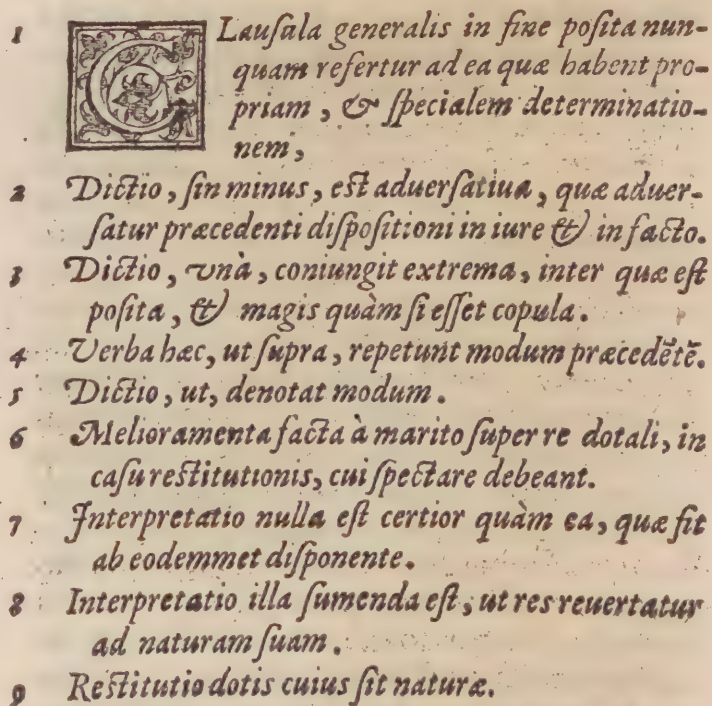 1 CLauſula generalis in fine poſita nun-
quam refertur ad ea quæ habent pro-
priam, & ſpecialem determinatio-
nem,
2 Dictio, ſin minus, eſt aduerſatiua, quæ aduer-
ſatur præcedenti diſpoſitioni in iure & in facto.
3 Dictio, vnà, coniungit extrema, inter quæ eſt
poſita, & magis quàm ſi eſſet copula.
4 Verba hæc, ut ſupra, repetunt modum præcedẽtẽ.
5 Dictio, ut, denotat modum.
6 Melioramenta facta à marito ſuper re dotali, in
caſu reſtitutionis, cui ſpectare debeant.
7 Interpretatio nulla eſt certior quàm ea, quæ fit
ab eodemmet diſponente.
8 Interpretatio illa ſumenda eſt, ut res reuertatur
ad naturam ſuam.
9 Reſtitutio dotis cuius ſit naturæ.